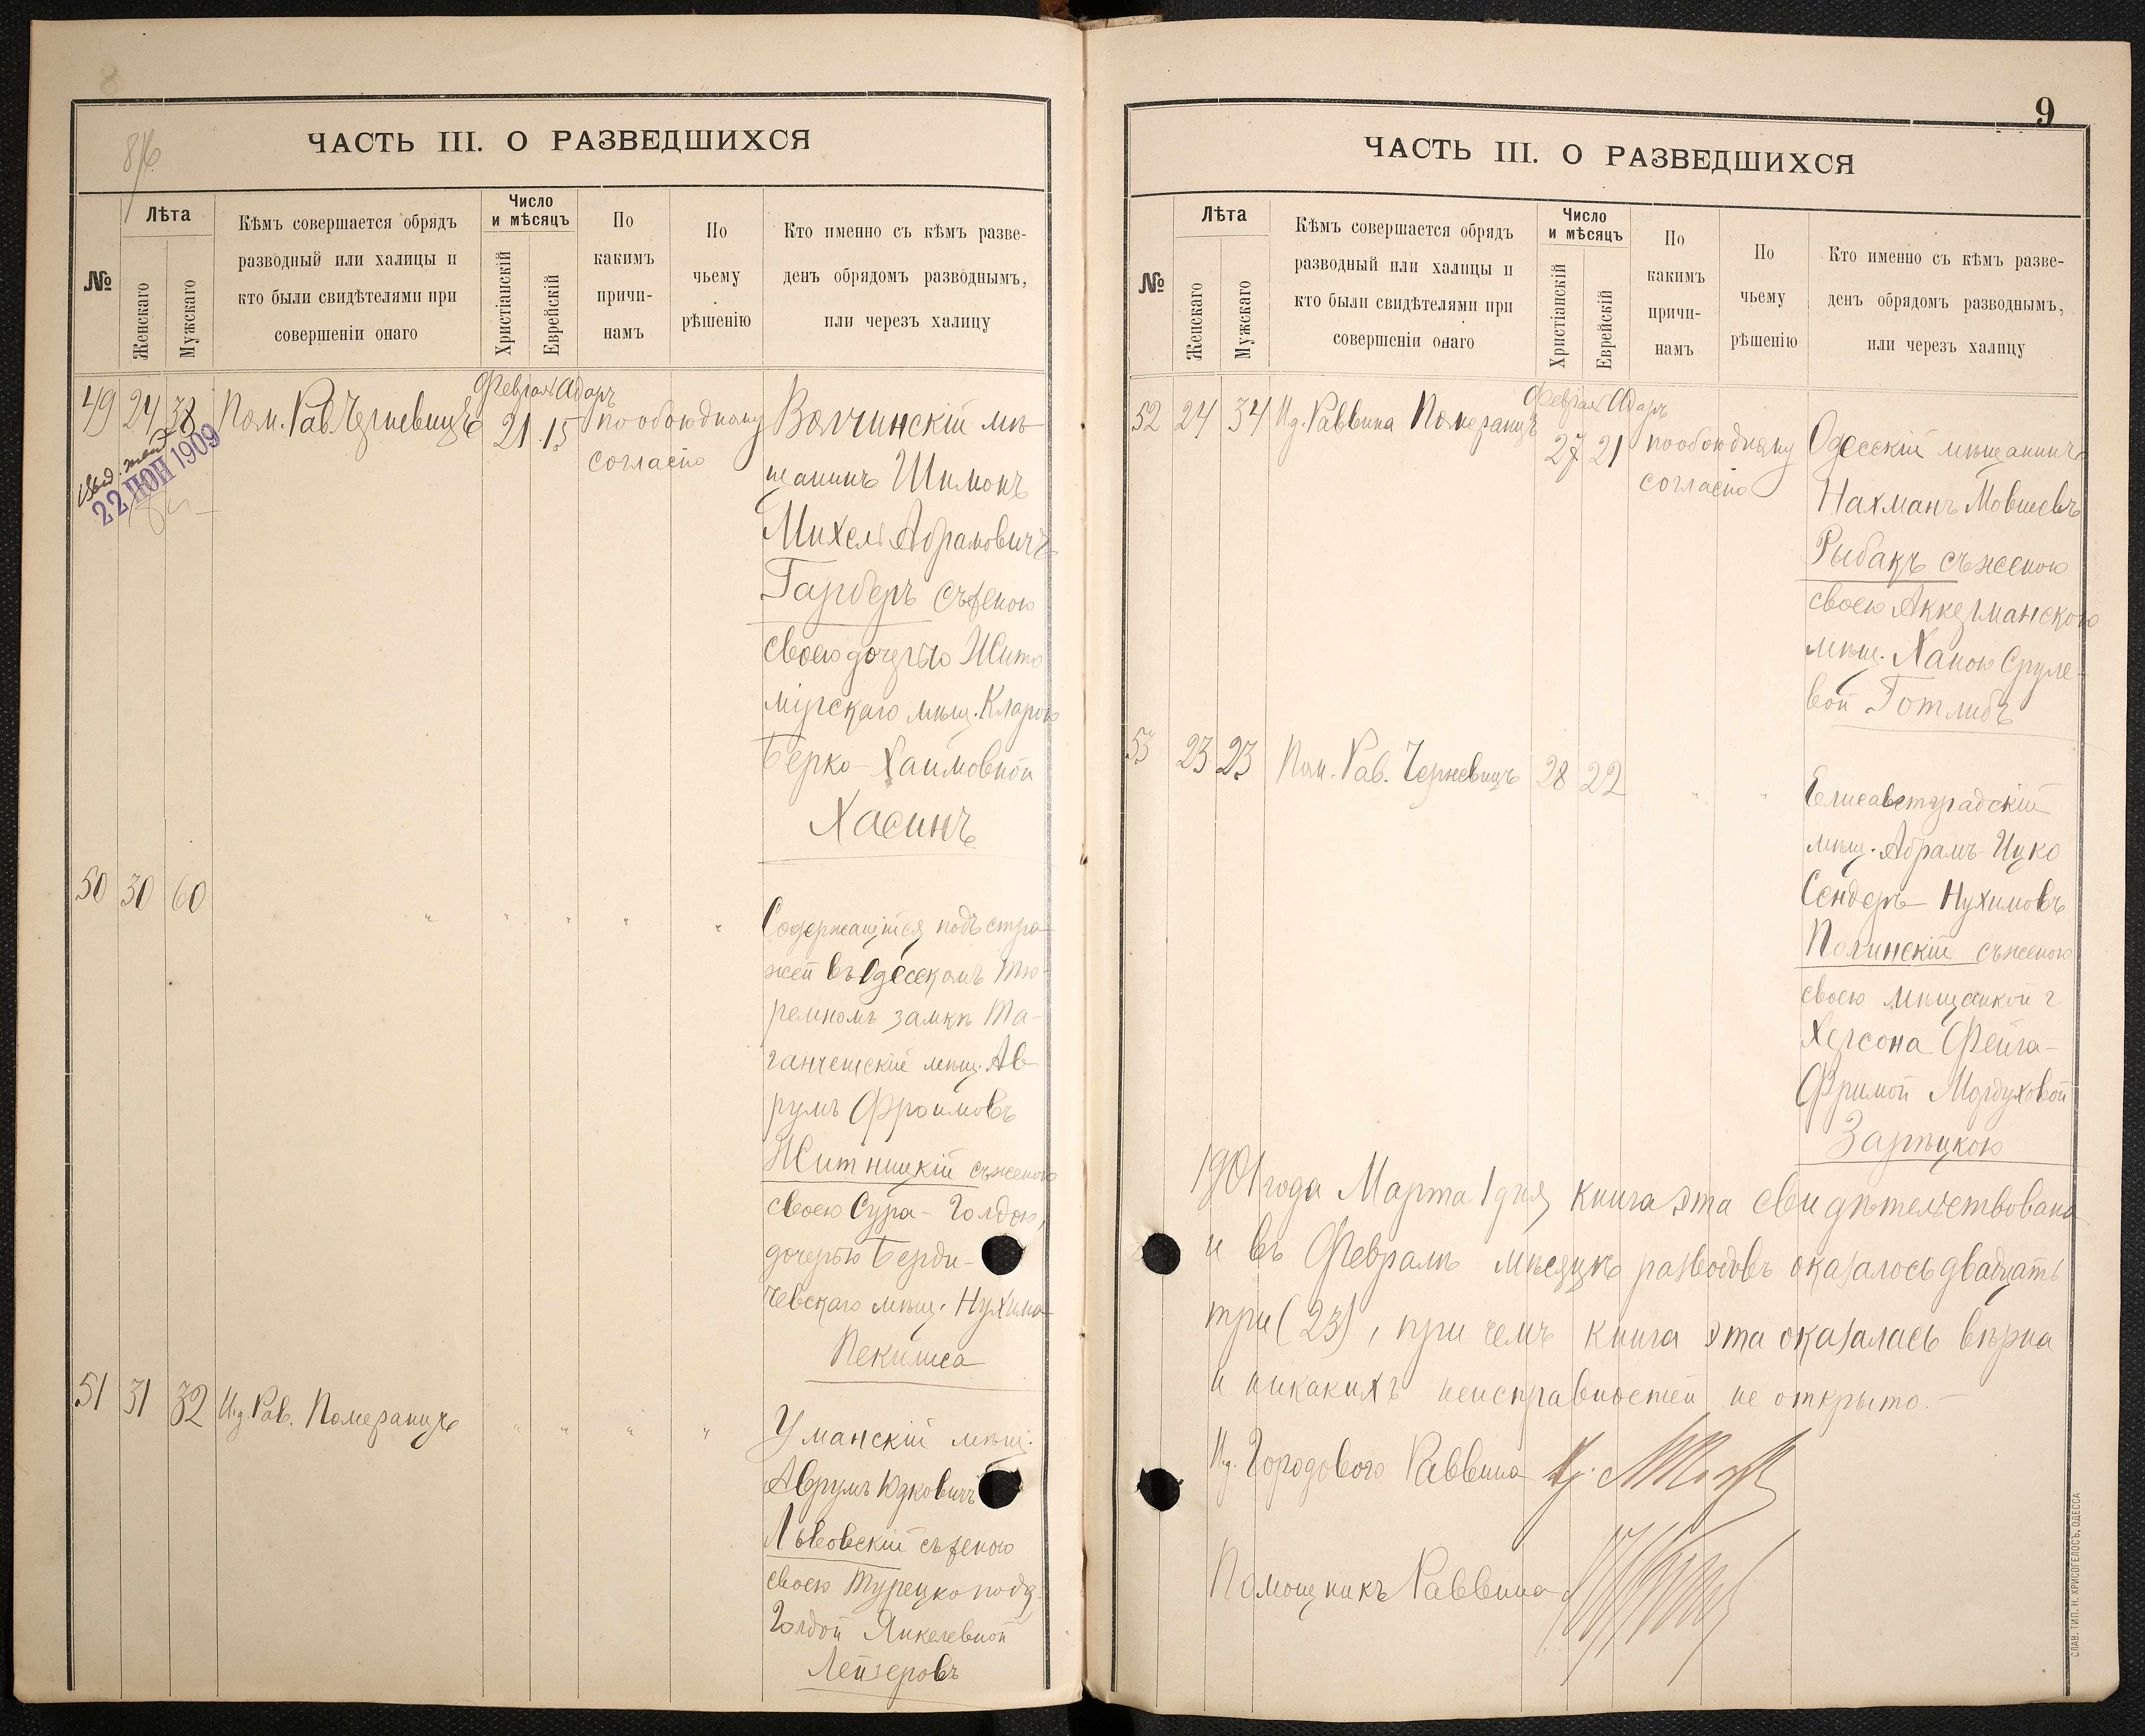 8
8/6
ЧАСТЬ III. О РАЗВЕДШИХСЯ
№
Лѣта
Женскаго
Мужскаго
Кѣмъ совершается обрядъ
разводный или халицы и
кто были свидѣтелями при
совершеніи онаго
Число
и мѣсяцъ
Христіанскій
Еврейскій
По
какимъ
причи-
намъ
По
чьему
рѣшенію
Кто именно съ кѣмъ разве-
денъ обрядомъ разводнымъ,
или черезъ халицу
49 24 38 Пом. Рав. Черневицъ
Февраля Адаръ
21 15
пообоюдному
согласію
22 ІЮН 1909
Волчинскій мѣ-
щанинъ Шимонъ
Михель Абрамовичъ
Гарберъ съ женою
своею дочерью Жито
мірскаго мѣщ. Кларою
Берко-Хаимовной
Хасинъ
50 30 60 " " " " "
Содержащійся подъ стра-
жей въ Одесскомъ тю-
ремномъ замкѣ Та-
ганчешскій мѣщ. Ав-
румъ Фроимовъ
Житницкій съ женою
своею Сура-Голдою,
дочерью Берди-
чевскаго мѣщ. Нухима
Пекилиса
51 31 32 И.д. Рав. Померанцъ " " " "
Уманскій мѣщ.
Аврумъ Юдковичъ
Львовскій съ женою
своею Турецкопод.
Голдой Янкелевной
Лейзеровъ
9
ЧАСТЬ III. О РАЗВЕДШИХСЯ
№
Лѣта
Женскаго
Мужскаго
Кѣмъ совершается обрядъ
разводный или халицы и
кто были свидѣтелями при
совершеніи онаго
Число
и мѣсяцъ
Христіанскій
Еврейскій
По
какимъ
причи-
намъ
По
чьему
рѣшенію
Кто именно съ кѣмъ разве-
денъ обрядомъ разводнымъ,
или черезъ халицу
52 24 34 И.д. Раввина Померанцъ
Февраля Адаръ
27 21
пообоюдному
согласію
Одесскій мѣщанинъ
Нахманъ Мовшевъ
Рыбакъ съ женою
своею Аккерманского
мѣщ. Ханою Сруле-
вой Готлибъ
53 23 23 Пом. Рав. Черневицъ 28 22 " "
Елисаветградскій
мѣщ. Абрамъ-Ицко
Сендеръ-Нухимовъ
Полинскій съ женою
своею мѣщанкой г
Херсона Фейга-
Фримой Мордуховой
Зарѣцкою
1901 года Марта 1 дня книга эта свидѣтельствована
и въ Февралѣ мѣсяцѣ разводовъ оказалось двадцать
три (23), при чемъ книга эта оказалась вѣрна
и никакихъ неисправностей не открыто.-
И.д. Городового Раввина
Помощникъ Раввина
СЛАВ. ТИП. Н. ХРИСОГЕЛОСЪ, ОДЕССА